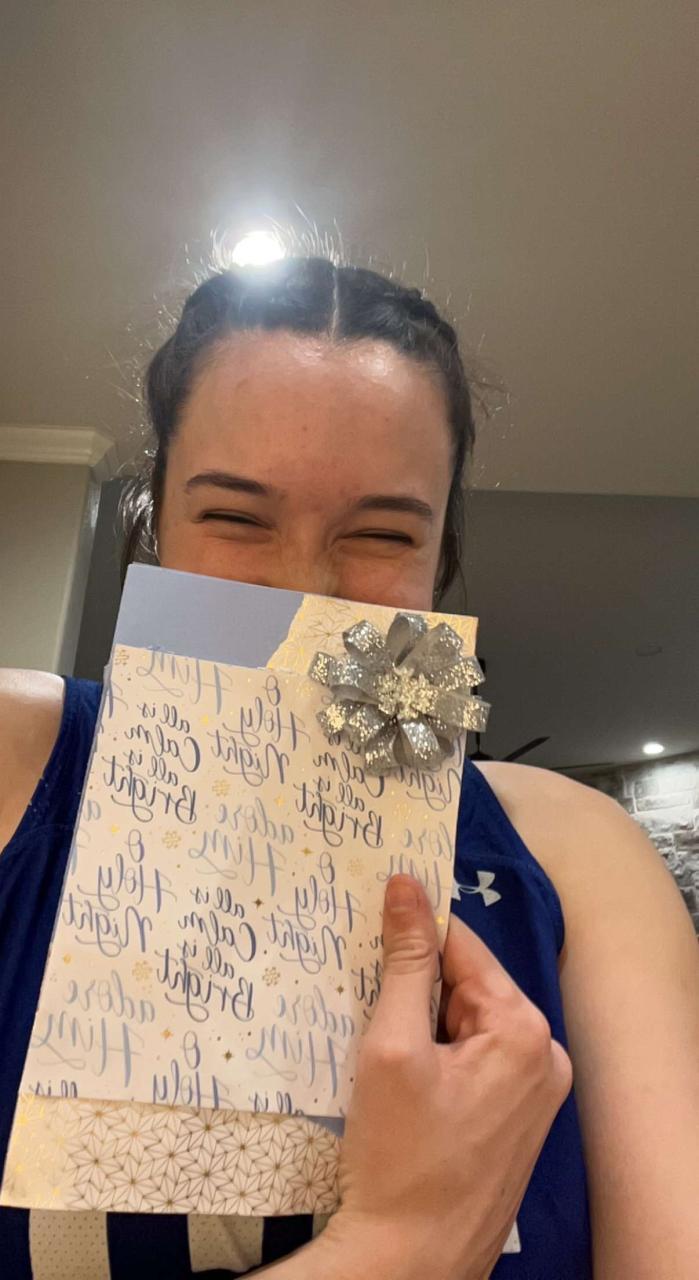 Him
O
Holy
Night
all is
Calm
all is
Bright
all is
Calm
all is
Bright
Night
adore
Him
adore
Him
O
Holy
Night
O
Holy
Night
all is
Calm
all is
Bright
adore
Him
adore
Him
O
Holy
all is
all is